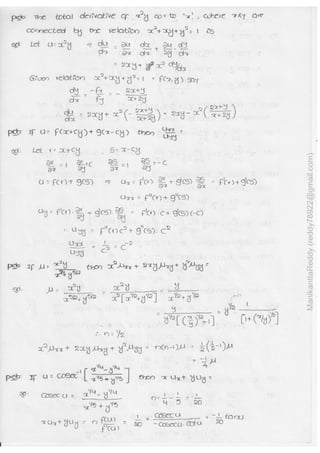 pgb: The total derivative of x²y w.r to 'x', where x & y are
connected by the relation x²+xy+y²=1 is
sol: Let u = x²y ⇒ du/dx = ∂u/∂x dx/dx + ∂u/∂y dy/dx
= 2xy + x² dy/dx
Given relation x²+xy+y²=1 = f(x,y) say
dy/dx = -fx/fy = - (2x+y)/(x+2y)
∴ du/dx = 2xy + x² (- (2x+y)/(x+2y)) = 2xy - x² ((2x+y)/(x+2y))
pgb: If u = f(x+cy) + g(x-cy) then uxx/uyy =
sol: Let r = x+cy s = x-cy
∂r/∂x = 1 ∂r/∂y = c ∂s/∂x = 1 ∂s/∂y = -c
u = f(r) + g(s) ⇒ ux = f'(r) ∂r/∂x + g'(s) ∂s/∂x = f'(r) + g'(s)
uxx = f''(r) + g''(s)
uy = f'(r) ∂r/∂y + g'(s) ∂s/∂y = f'(r) c + g'(s) (-c)
∴ uyy = f''(r) c² + g''(s) c²
uxx/uyy = 1/c² = c⁻²
pgb: If u = x²y/(x^5/2+y^5/2) then x² uxx + 2xy uxy + y² uyy =
sol: u = x²y = x²y = y
= y = y^1/2 1
∴ n = 1/2
x² uxx + 2xy uxy + y² uyy = n(n-1)u = 1/2 (1/2 - 1) u
= -1/4 u
pgb: If u = cosec⁻¹ [ (x^1/4 - y^1/4)/(x^1/5 + y^1/5) ] then x ux + y uy =
sol: cosec u = (x^1/4 - y^1/4)/(x^1/5 + y^1/5) n = 1/4 - 1/5 = 1/20
x ux + y uy = n f(u)/f'(u) = 1/20 cosec u/(-cosec u cot u) = -1/20 tan u
ManikantaReddy (reddy78922@gmail.com)